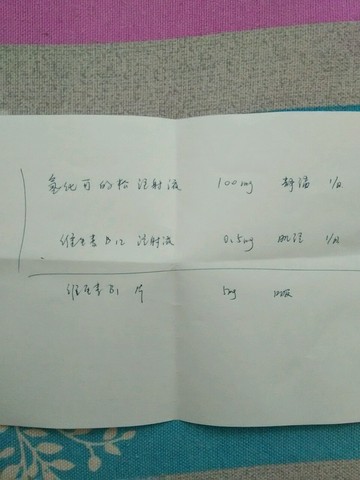 氢化可的松 注射液 100mg 静滴 1/日
维生素B12 注射液 0.5mg 肌注 1/日
维生素B1 片 5mg 口服